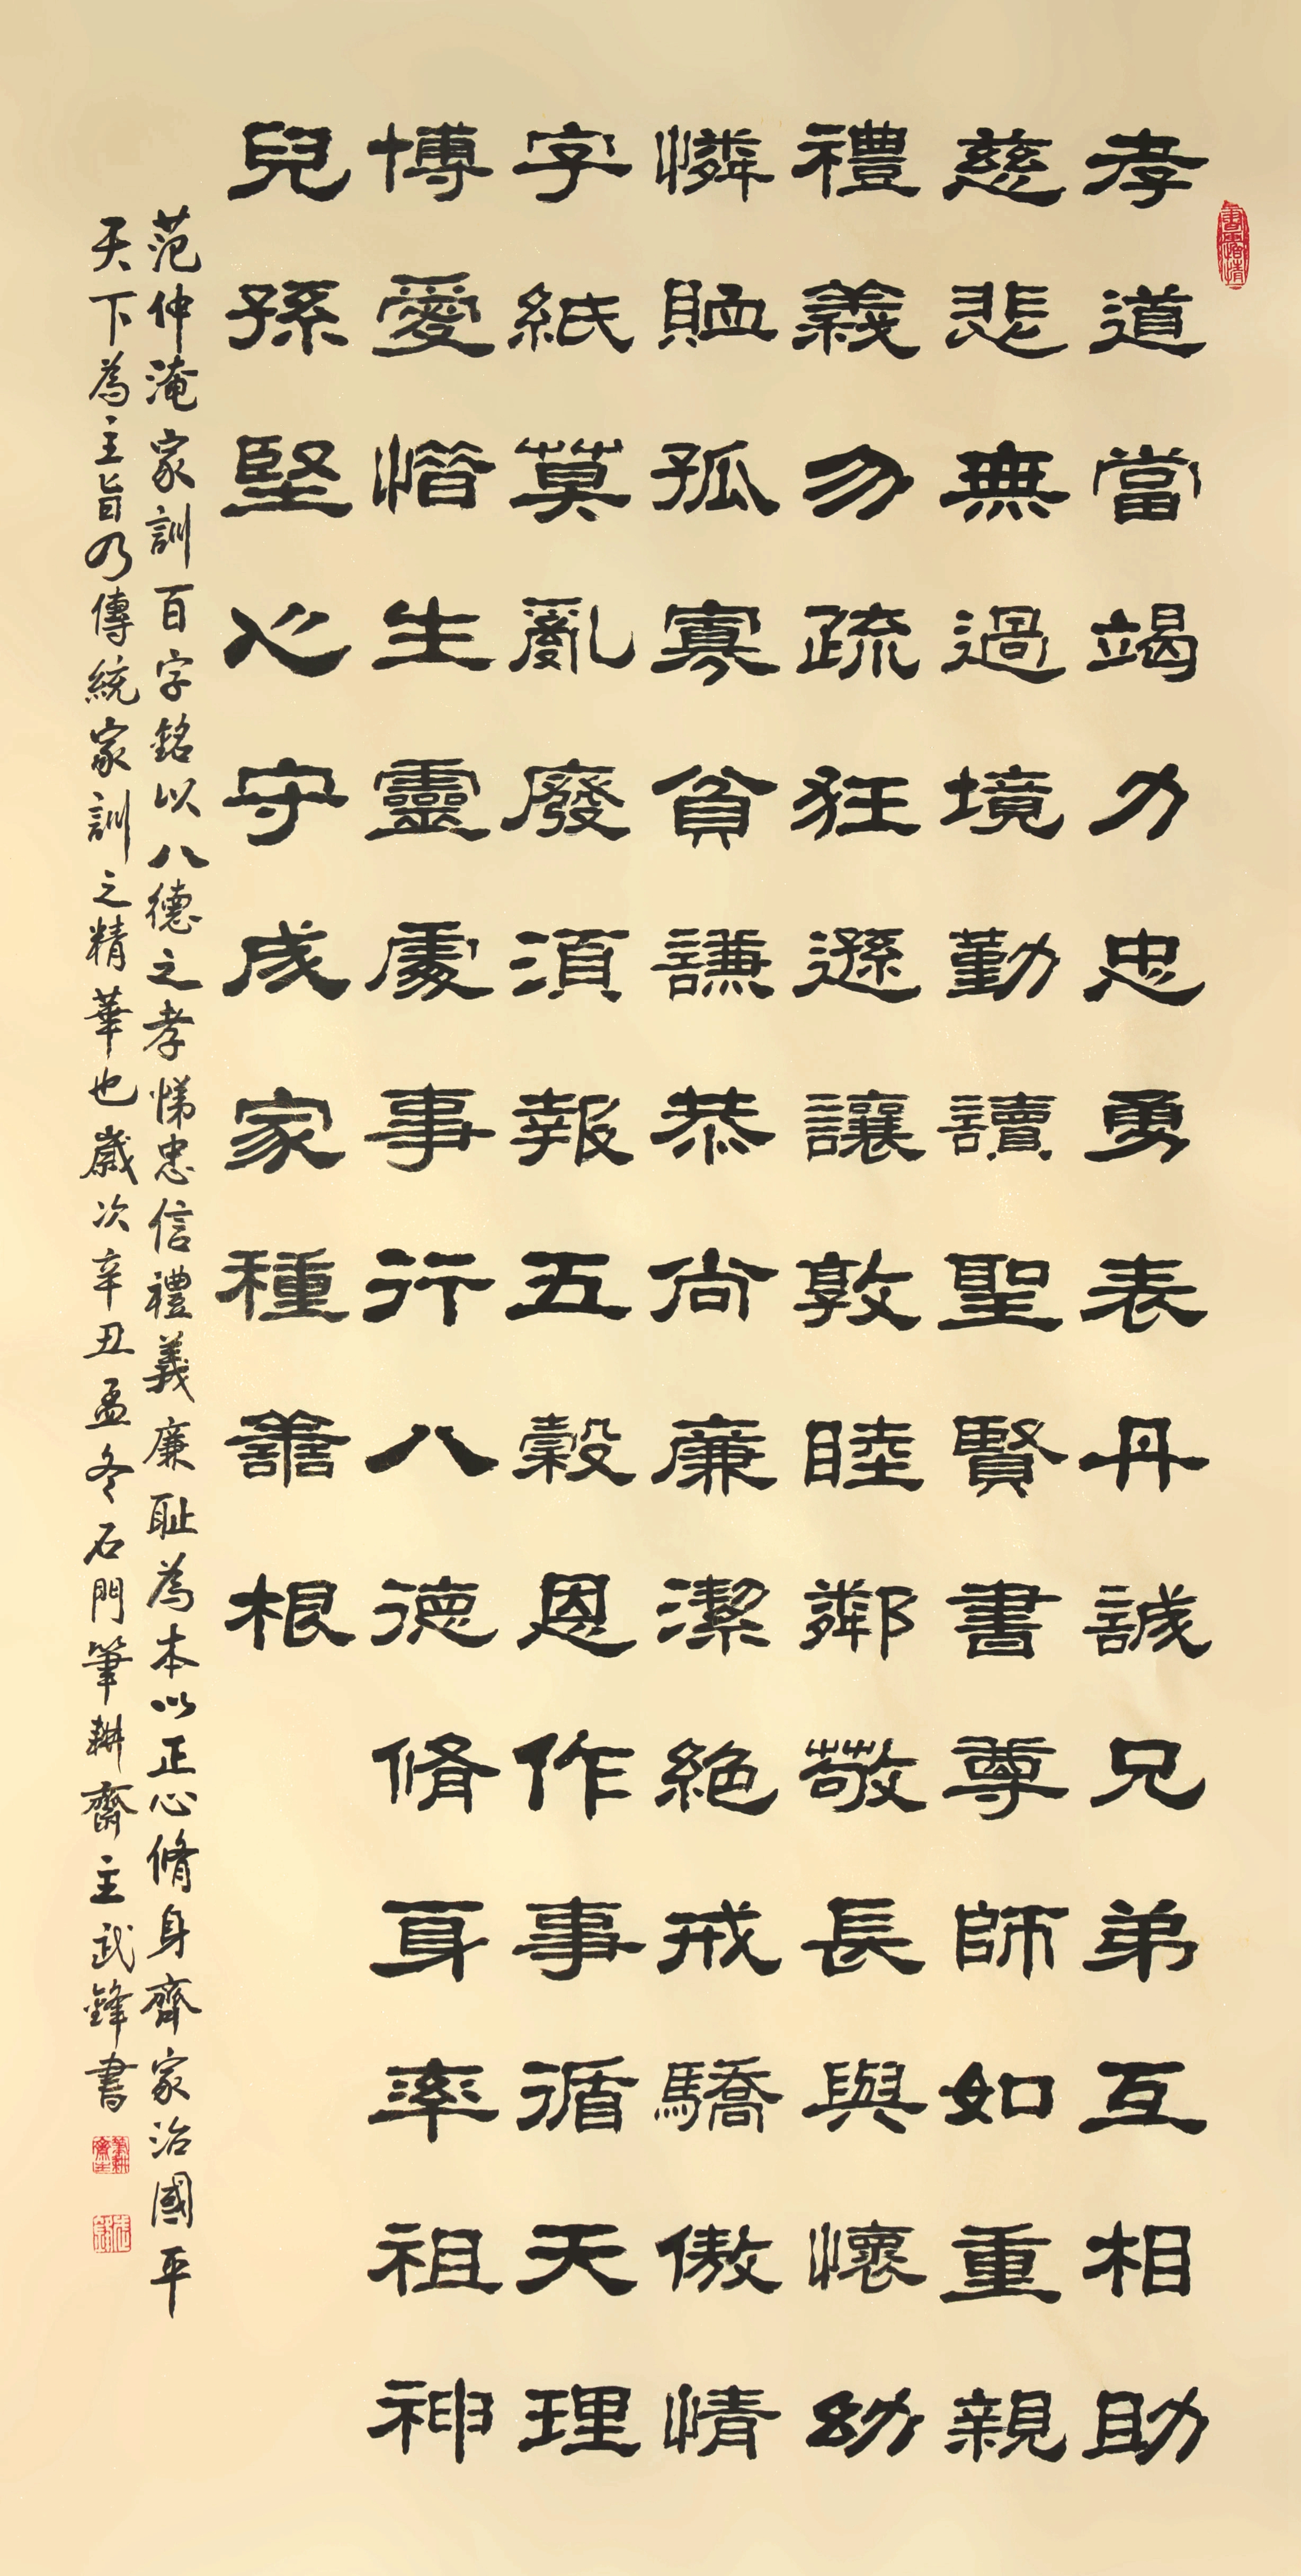 孝道當竭力忠勇表丹誠兄弟互相助
慈悲無過境勤讀聖賢書尊師如重親
禮義勿疏狂遜讓敦睦鄰敬長與懷幼
憐恤孤寡貧謙恭尚廉潔絕戒驕傲情
字紙莫亂廢須報五穀恩作事循天理
博愛惜生靈處事行八德脩身率祖神
兒孫堅心守成家種善根
范仲淹家訓百字銘以八德之孝悌忠信禮義廉耻為本以正心脩身齊家治國平
天下為主旨乃傳統家訓之精華也歲次辛丑孟冬石門筆耕齋主武鋒書
筆耕齋主